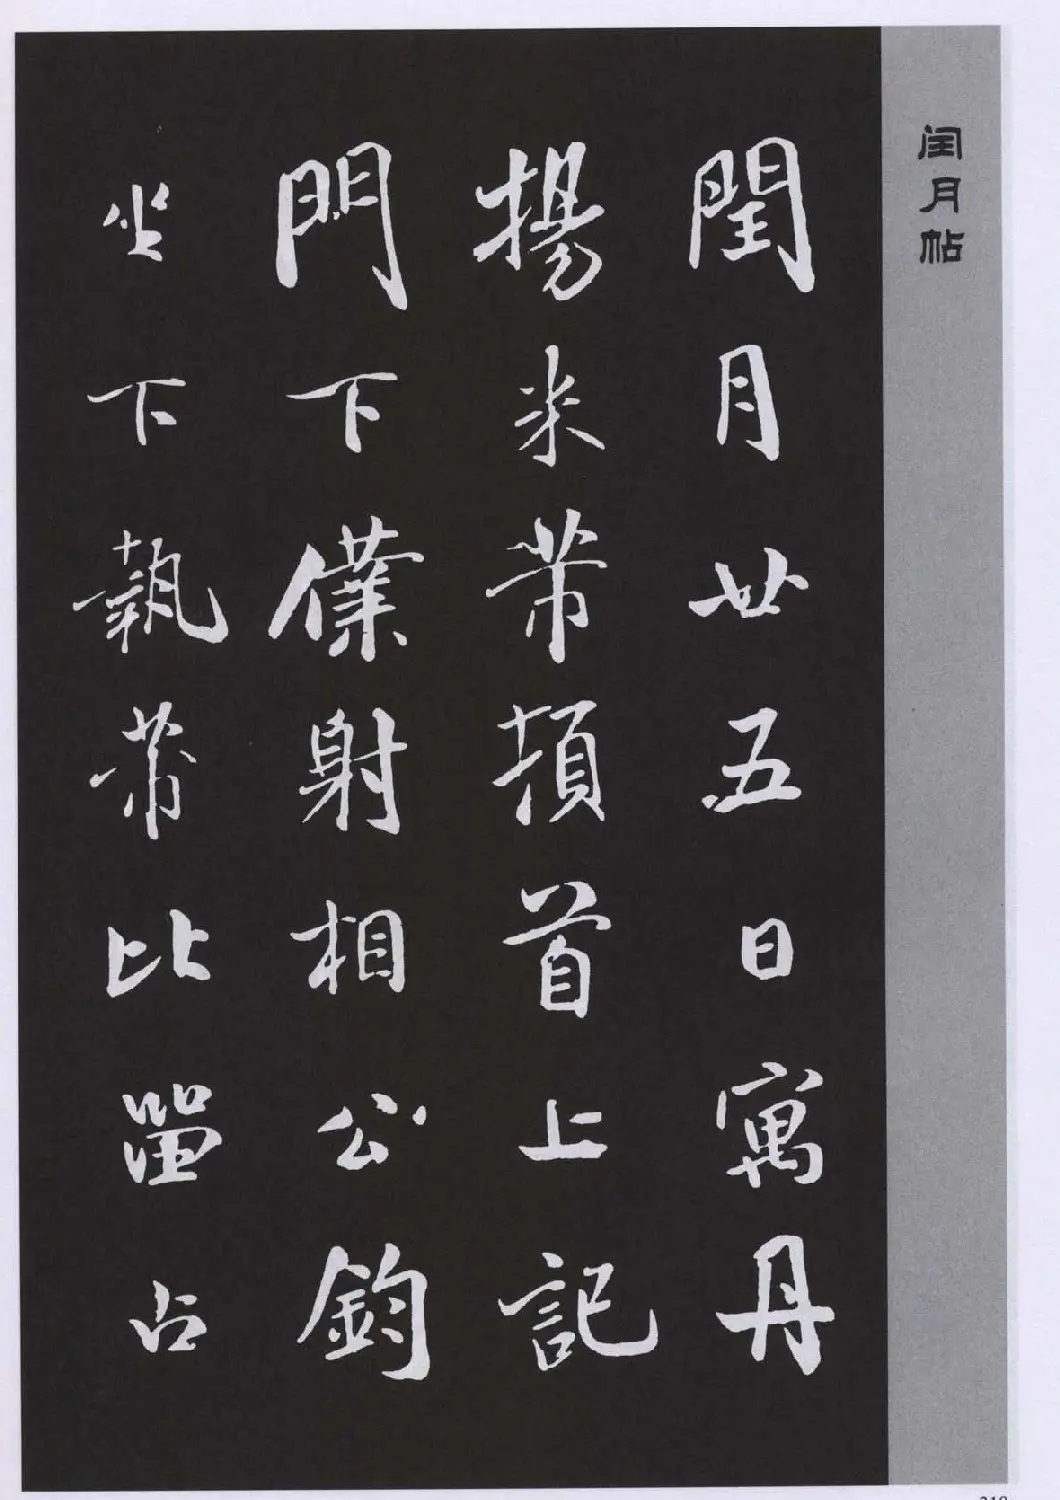 闰月帖
閏月廿五日寓丹
揚米芾頓首上記
門下僕射相公鈞
坐下執芾比喦占